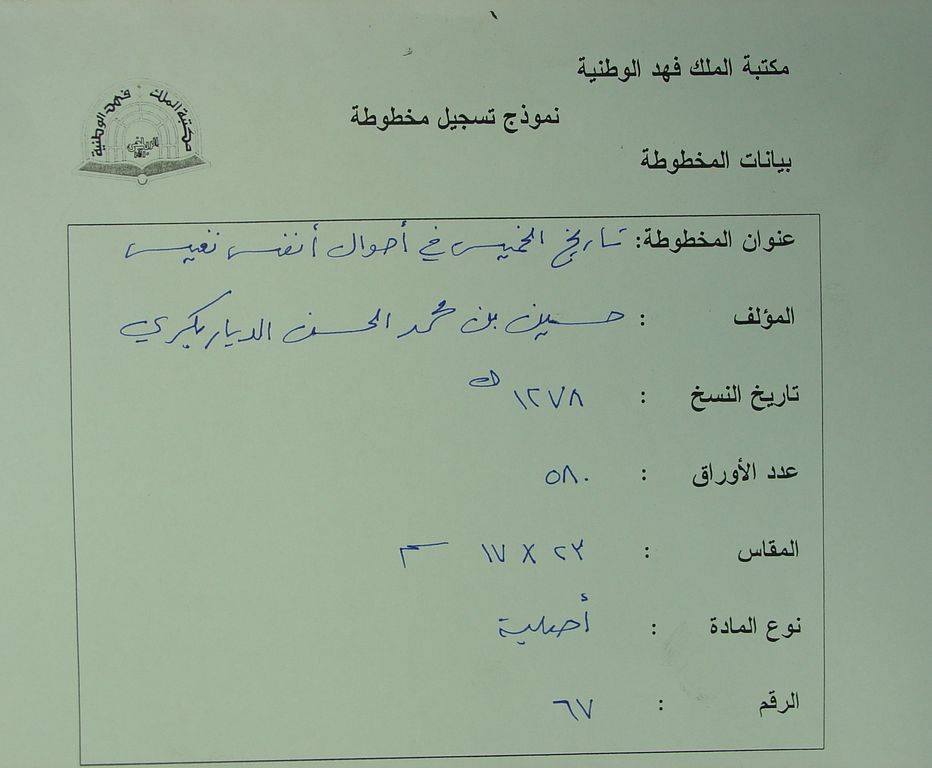 مكتبة الملك فهد الوطنية
نموذج تسجيل مخطوطة
مكتبة الملك فهد الوطنية
الرياض
بيانات المخطوطة
عنوان المخطوطة: تاريخ الخميس في أحوال أنفس نفيس
المؤلف : حسين بن محمد الحسن الدياربكري
تاريخ النسخ : ١٢٧٨
عدد الأوراق : ٥٨٠
المقاس : ٢٣ X ١٧ سم
نوع المادة : أصلية
الرقم : ٦٧